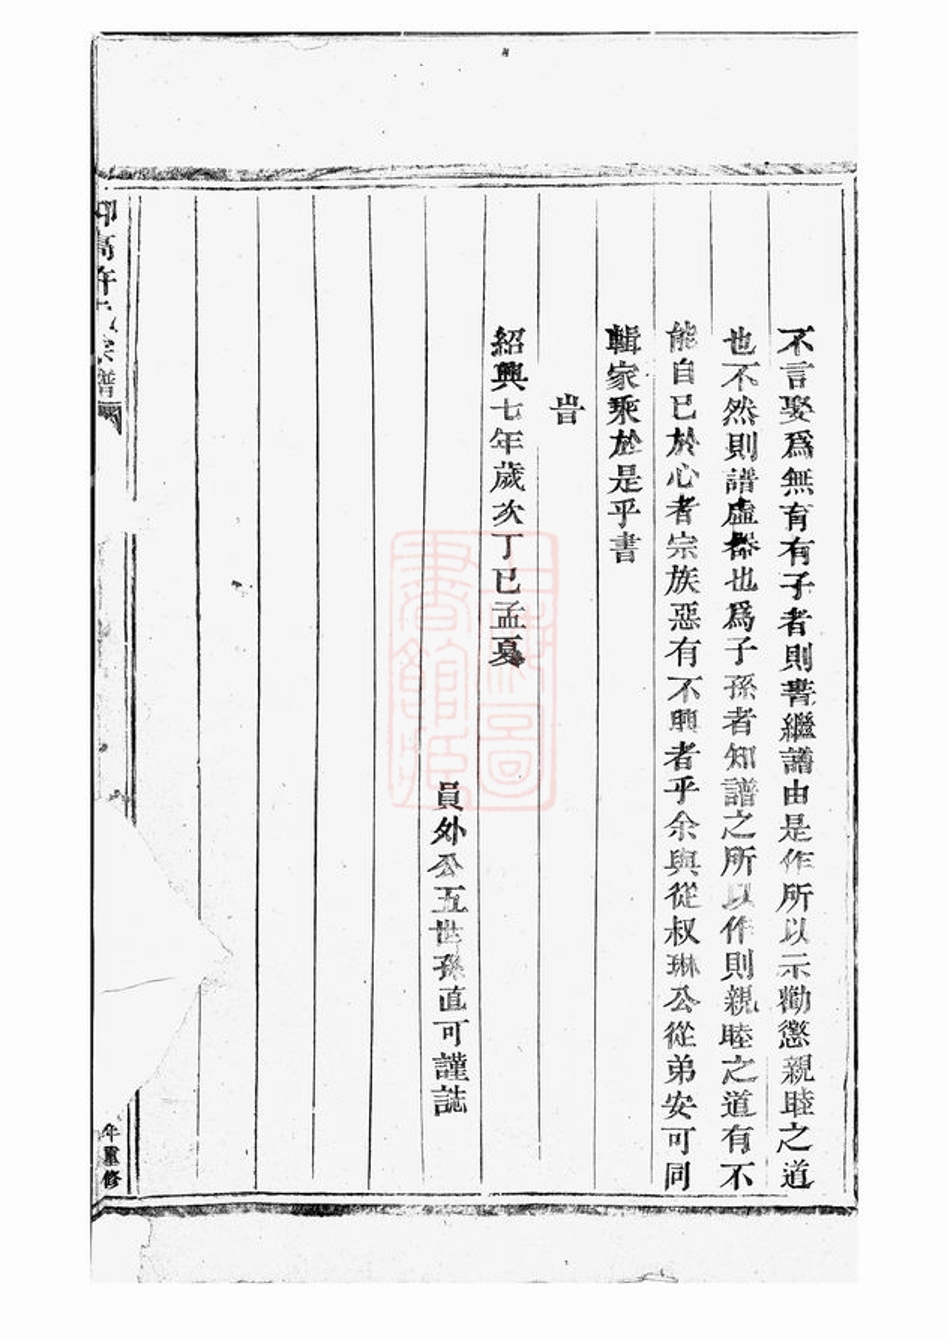 不言娶爲無有有子者則書繼譜由是作所以示勸懲親睦之道
也不然則譜虛器也爲子孫者知譜之所以作則親睦之道有不
能自已於心者宗族惡有不興者乎余與從叔琳公從弟安可同
輯家乘於是乎書
旹
紹興七年歲次丁巳孟夏
員外公五世孫直可謹誌
宗譜
年重修
上海圖書館藏